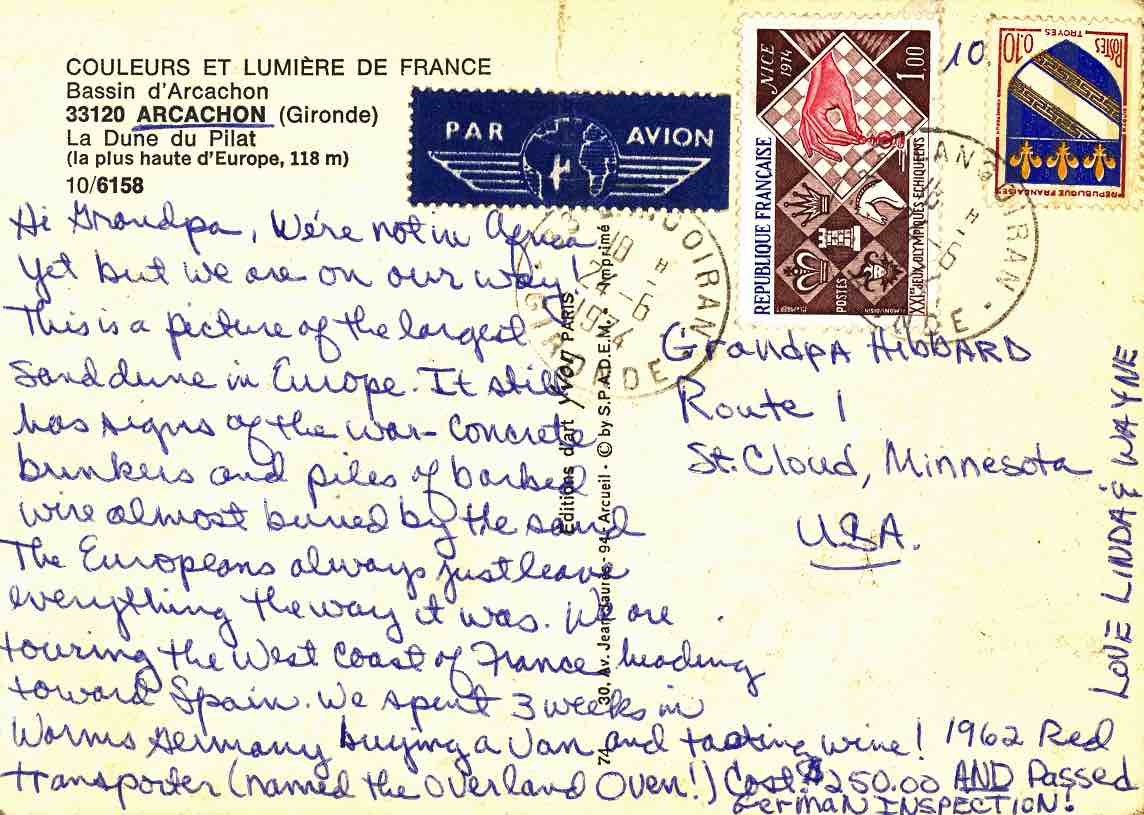 COULEURS ET LUMIÈRE DE FRANCE
Bassin d'Arcachon
33120 ARCACHON (Gironde)
La Dune du Pilat
(la plus haute d'Europe, 118 m)
10/6158
PAR AVION
NICE 1974
1,00
REPUBLIQUE FRANÇAISE
POSTES
XXIes JEUX OLYMPIQUES ECHIQUEENS
10
TROYES
POSTES
0,10
REPUBLIQUE FRANÇAISE
18 H
-6
1974
GIRONDE
Hi Grandpa, We're not in Africa
yet but we are on our way!
This is a picture of the largest
sand dune in Europe. It still
has signs of the war - concrete
bunkers and piles of barbed
wire almost buried by the sand
The Europeans always just leave
everything the way it was. We are
touring the West Coast of France heading
toward Spain. We spent 3 weeks in
Worms Germany buying a van and tasting wine! 1962 Red
transporter (named the Overland Oven!) Cost $250.00 AND Passed
German INSPECTION!
Editions d'art yvon PARIS
74 30, Av. Jean-Jaurès - 94 - Arcueil - © by S.P.A.D.E.M. - Imprimé
Grandpa HIBBARD
Route 1
St. Cloud, Minnesota
USA.
LOVE LINDA & WAYNE